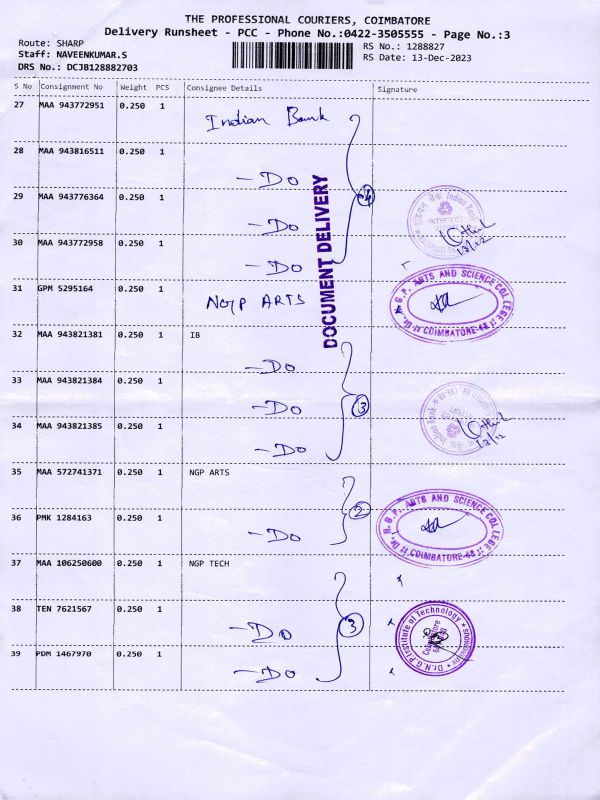 THE PROFESSIONAL COURIERS, COIMBATORE
Delivery Runsheet - PCC - Phone No.:0422-3505555 - Page No.:3
Route: SHARP
Staff: NAVEENKUMAR.S
DRS No.: DCJB128882703
RS No.: 1288827
RS Date: 13-Dec-2023
S No Consignment No Weight PCS Consignee Details Signature
27 MAA 943772951 0.250 1 Indian Bank
28 MAA 943816511 0.250 1 - Do
29 MAA 943776364 0.250 1 - Do
30 MAA 943772958 0.250 1 - Do
4
DOCUMENT DELIVERY
Indian Bank
13/12
31 GPM 5295164 0.250 1 NGP ARTS
Dr. N.G.P. ARTS AND SCIENCE COLLEGE
COIMBATORE-48
32 MAA 943821381 0.250 1 IB
- Do
33 MAA 943821384 0.250 1 - Do
34 MAA 943821385 0.250 1 - Do
3
Indian Bank
13/12
35 MAA 572741371 0.250 1 NGP ARTS
36 PMK 1284163 0.250 1 - Do
2
Dr. N.G.P. ARTS AND SCIENCE COLLEGE
COIMBATORE-48
37 MAA 106250600 0.250 1 NGP TECH
38 TEN 7621567 0.250 1 - Do
39 PDM 1467970 0.250 1 - Do
3
Dr.N.G.P.Institute of Technology